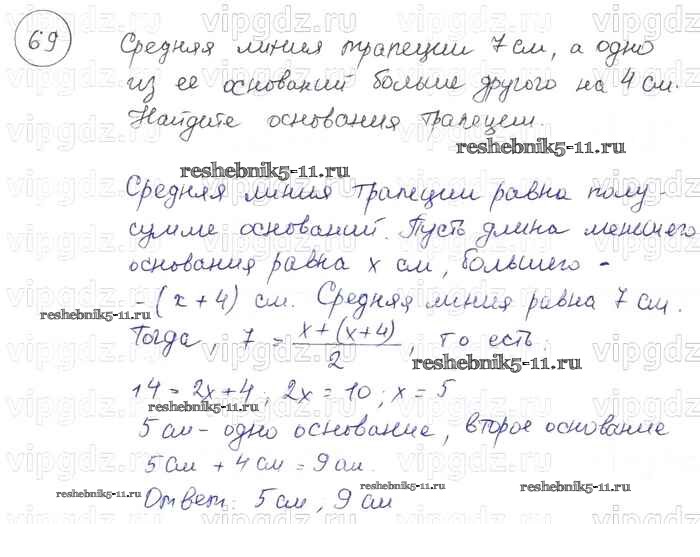 69
Средняя линия трапеции 7 см, а одно
из ее оснований больше другого на 4 см.
Найдите основания трапеции.
reshebnik5-11.ru
reshebnik5-11.ru
Средняя линия трапеции равна полу-
сумме оснований. Пусть длина меншего
основания равна x см, большего -
- (x + 4) см. Средняя линия равна 7 см.
reshebnik5-11.ru
Тогда, 7 = (x + (x + 4))/2, то есть:
reshebnik5-11.ru
14 = 2x + 4; 2x = 10; x = 5
reshebnik5-11.ru
5 см - одно основание, второе основание
5 см + 4 см = 9 см.
reshebnik5-11.ru
reshebnik5-11.ru
reshebnik5-11.ru
Ответ: 5 см, 9 см
vipgdz.ru